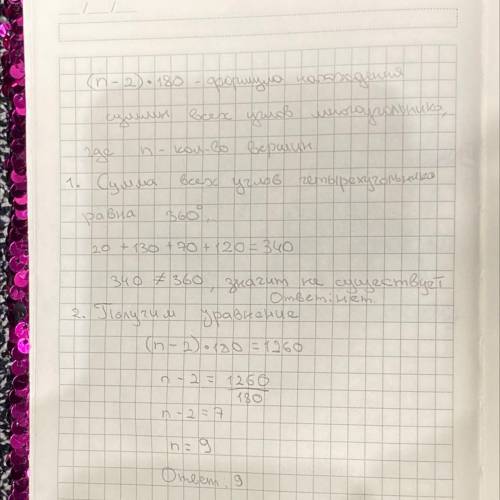 (n - 2) • 180 - формула нахождения
суммы всех углов многоугольника,
где n - кол-во вершин
1. Сумма всех углов четырехугольника
равна 360°,
20 + 130 + 70 + 120 = 340
340 ≠ 360, значит не существует
Ответ: нет.
2. Получим уравнение
(n - 2) • 180 = 1260
n - 2 = 1260
180
n - 2 = 7
n = 9
Ответ: 9